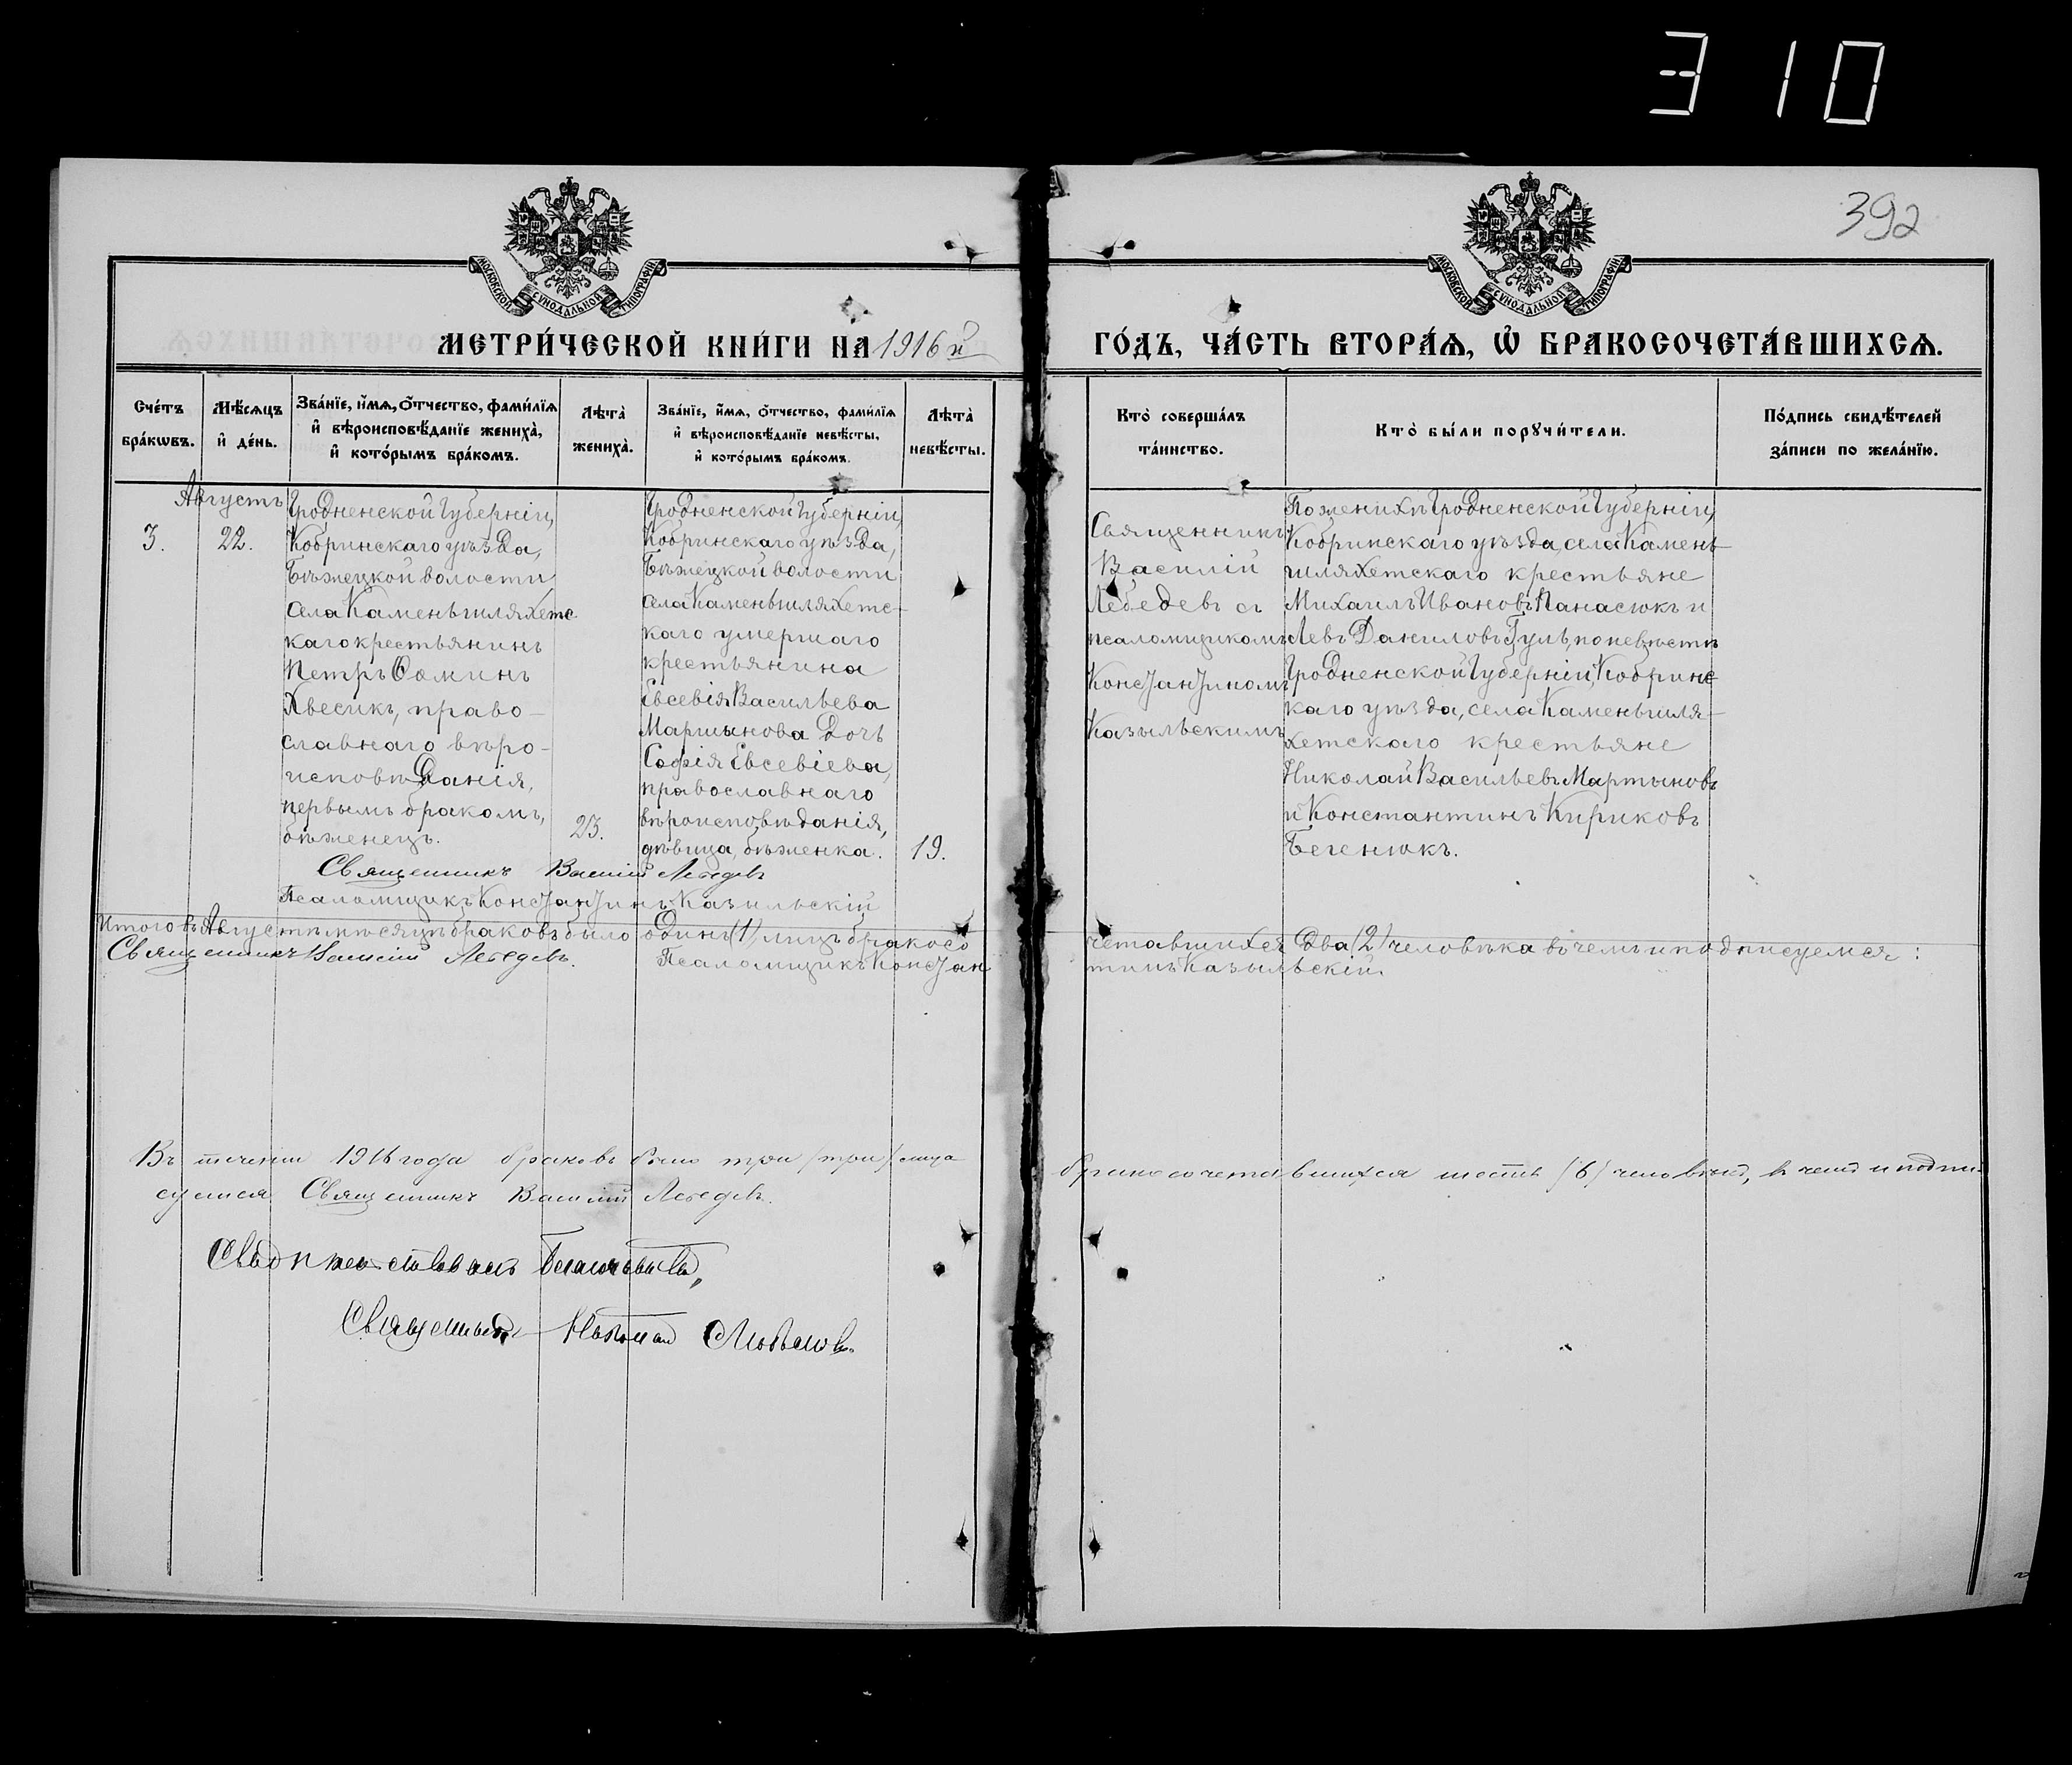 310
392
МОСКОВСКОЙ СУНОДАЛЬНОЙ ТИПОГРАФІИ
МОСКОВСКОЙ СУНОДАЛЬНОЙ ТИПОГРАФІИ
МЕТРИ́ЧЕСКОЙ КНИ́ГИ НА 1916 й
ГО́ДЪ, ЧА́СТЬ ВТОРА́Я, Ѡ҆ БРАКОСОЧЕТА́ВШИХСЯ.
Сче́тъ
бра́кѡвъ.
Мѣ́сяцъ
и҆ де́нь.
Зва́нїе, и҆́мя, ѻ҆́тчество, фами́лїя
и҆ вѣроисповѣ́данїе жениха̀,
и҆ кото́рымъ бра́комъ.
Лѣта̀
жениха̀.
Зва́нїе, и҆́мя, ѻ҆́тчество, фами́лїя
и҆ вѣроисповѣ́данїе невѣ́сты,
и҆ кото́рымъ бра́комъ.
Лѣта̀
невѣ́сты.
Кто̀ соверша́лъ
та́инство.
Кто̀ бы́ли порꙋчи́тели.
По́дпись свидѣ́телей
за́писи по жела́нїю.
3.
Августъ
22.
Гродненской Губерніи,
Кобринскаго уѣзда,
Бѣжецкой волости
села Камень шляхетс-
каго крестьянинъ
Петръ Ѳоминъ
Хвесикъ, право-
славнаго вѣро-
исповѣданія,
первымъ бракомъ,
бѣженецъ.
23.
Гродненской Губерніи,
Кобринскаго уѣзда,
Бѣжецкой волости
села Камень шляхетс-
каго умершаго
крестьянина
Евсевія Васильева
Мартынова дочь
Софія Евсевіева,
православнаго
вѣроисповѣданія,
дѣвица, бѣженка.
19.
Священникъ
Василій
Лебедевъ съ
псаломщикомъ
Константиномъ
Казыльскимъ
По женихѣ Гродненской Губерніи,
Кобринскаго уѣзда, села Камень
шляхетскаго крестьяне
Михаилъ Ивановъ Панасюкъ и
Левъ Даниловъ Гуль, по невѣстѣ
Гродненской Губерніи, Кобринс-
каго уѣзда, села Камень шля-
хетскаго крестьяне
Николай Васильевъ Мартыновъ
и Константинъ Кириковъ
Бегенюкъ.
Священникъ Василій Лебедевъ
Псаломщикъ Константинъ Казыльскій
Итого въ Августѣ мѣсяцѣ браковъ было одинъ (1), лицъ бракосо
четавшихся два (2) человѣка въ чемъ и подписуемся:
Священникъ Василій Лебедевъ. Псаломщикъ Констан
тинъ Казыльскій.
Въ теченіи 1916 года браковъ было три (три) лица
бракосочетавшихся шесть (6) человѣкъ, въ чемъ и подпи-
суемся Священникъ Василій Лебедевъ.
Священникъ